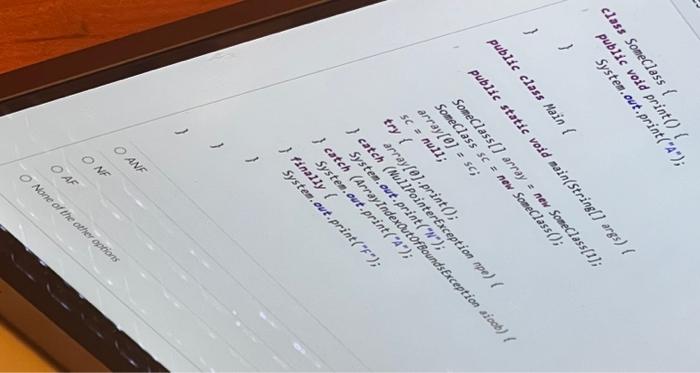 class SomeClass {
public void print() {
System.out.print("A");
}
}
public class Main {
public static void main(String[] args) {
SomeClass[] array = new SomeClass[1];
SomeClass sc = new SomeClass();
array[0] = sc;
sc = null;
try {
array[0].print();
} catch (NullPointerException npe) {
System.out.print("N");
} catch (ArrayIndexOutOfBoundsException aioob) {
System.out.print("A");
} finally {
System.out.print("F");
}
}
}
ANF
NF
AF
None of the other options